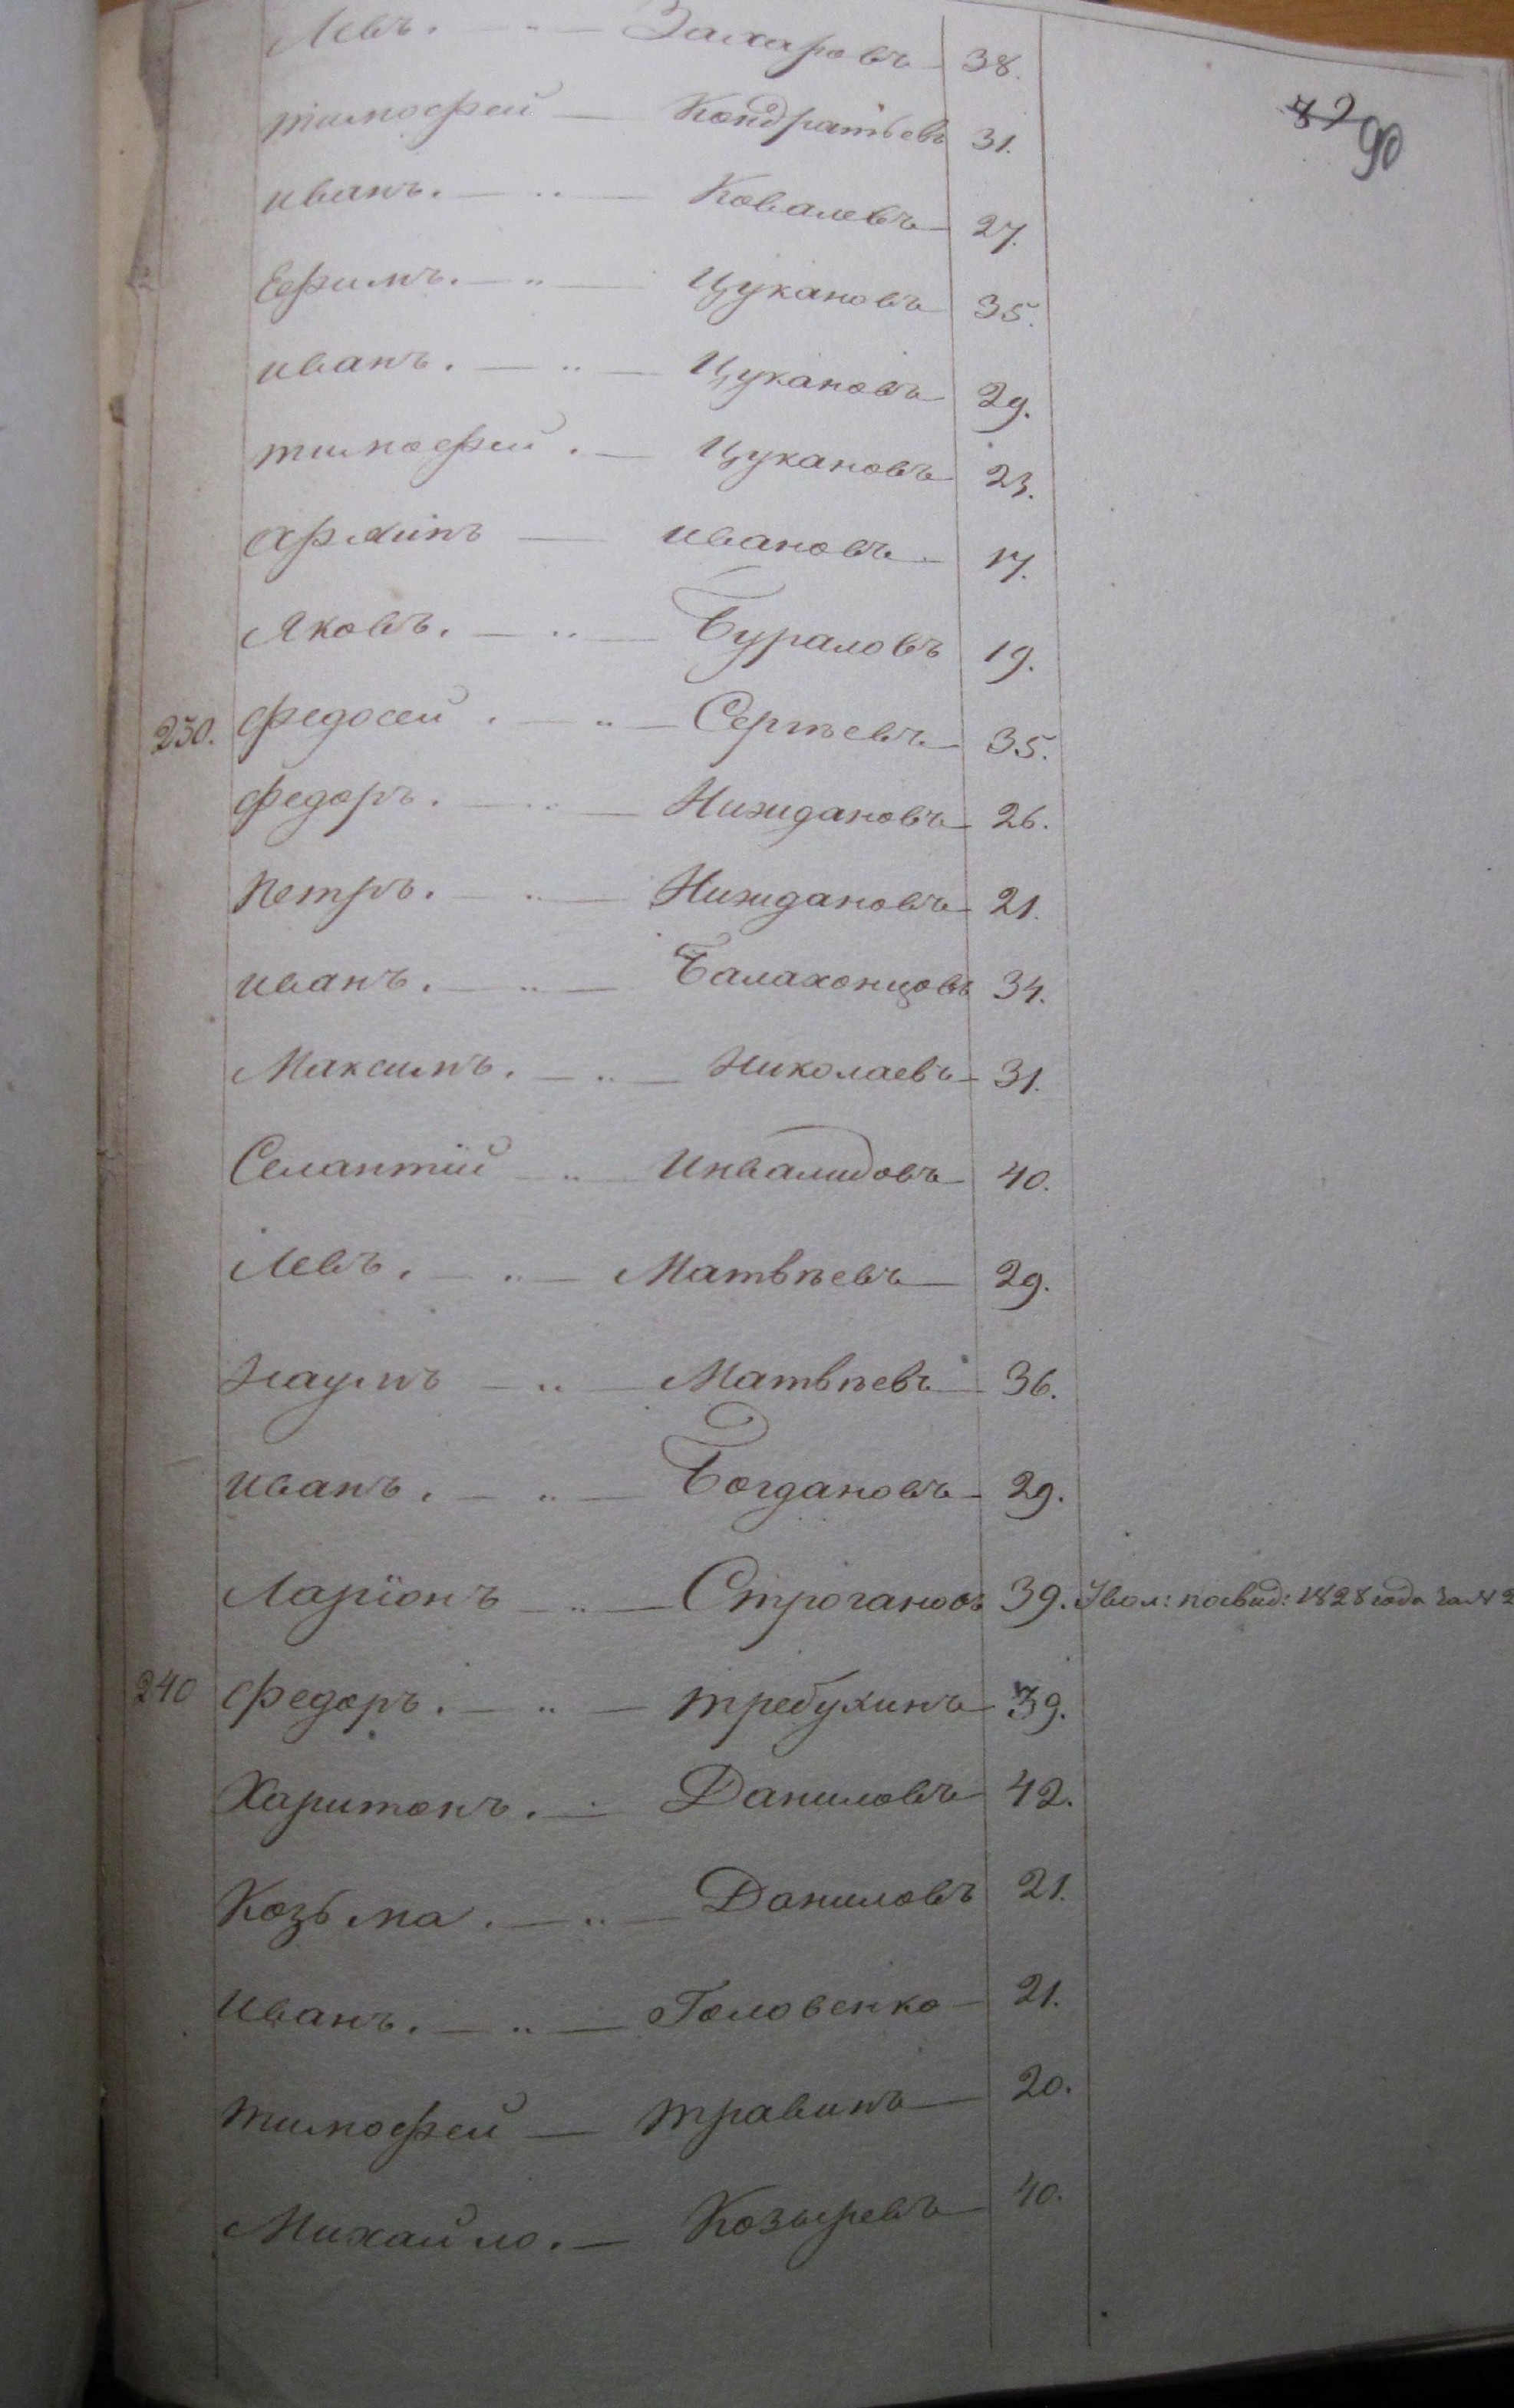 Левъ. — Захаровъ 38.
42 90
тимофей — Кондратьевъ 31.
иванъ. — Ковалевъ 27.
Ефимъ. — Цукановъ 35.
иванъ. — Цукановъ 29.
тимофей. — Цукановъ 23.
архипъ — ивановъ 17.
Яковъ. — Бураловъ 19.
230. федосей. — Сергѣевъ 35.
федоръ. — Ниждановъ 26.
петръ. — Ниждановъ 21.
иванъ. — Балахонцовъ 34.
Максимъ. — Николаевъ 31.
Селантій — Инвалидовъ 40.
Левъ. — Матвѣевъ 29.
Наумъ — Матвѣевъ 36.
иванъ. — Богдановъ 29.
Ларіонъ — Строгановъ 39. Увол: по свид: 1828 года за № 2
240 федоръ. — требухинъ 39.
Харитонъ. — Даниловъ 42.
Козьма. — Даниловъ 21.
Иванъ. — Головенко 21.
тимофей — травинъ 20.
Михайло. — Козыревъ 40.